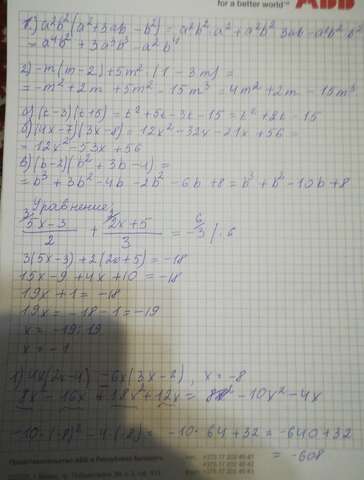 for a better world™ ABB
1.) a²b²(a²+3ab-b²) = a²b²·a² + a²b²·3ab - a²b²·b²
= a⁴b² + 3a³b³ - a²b⁴
2) -m(m-2)+5m²·(1-3m) =
= -m²+2m+5m²-15m³ = 4m²+2m-15m³
а) (t-3)(t+5) = t²+5t-3t-15 = t²+2t-15
б) (4x-7)(3x-8) = 12x²-32x-21x+56 =
= 12x²-53x+56
в) (b-2)(b²+3b-4) =
= b³+3b²-4b-2b²-6b+8 = b³+b²-10b+8
Уравнение:
5x-3/2 + 2x+5/3 = -3 |·6
3(5x-3)+2(2x+5) = -18
15x-9+4x+10 = -18
19x+1 = -18
19x = -18-1 = -19
x = -19:19
x = -1
1) 4x(2x-4) -6x(3x-2), x = -8
8x² - 16x - 18x² + 12x = -10x² - 4x
-10·(-8)² - 4·(-8) = -10·64+32 = -640+32
= -608
Представительство АВВ в Республике Беларусь